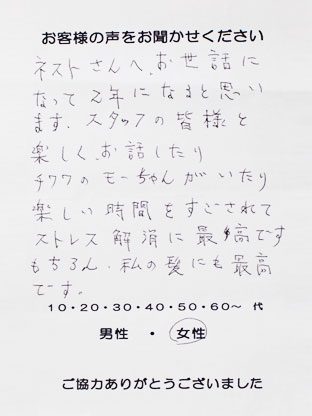 お客様の声をお聞かせください
ネストさんへ、お世話に
なって2年になると思い
ます、スタッフの皆様と
楽しく、お話したり
チワワのモーちゃんがいたり
楽しい時間をすごされて
ストレス解消に最高です
もちろん、私の髪にも最高
です。
10・20・30・40・50・60～ 代
男性 ・ 女性
ご協力ありがとうございました